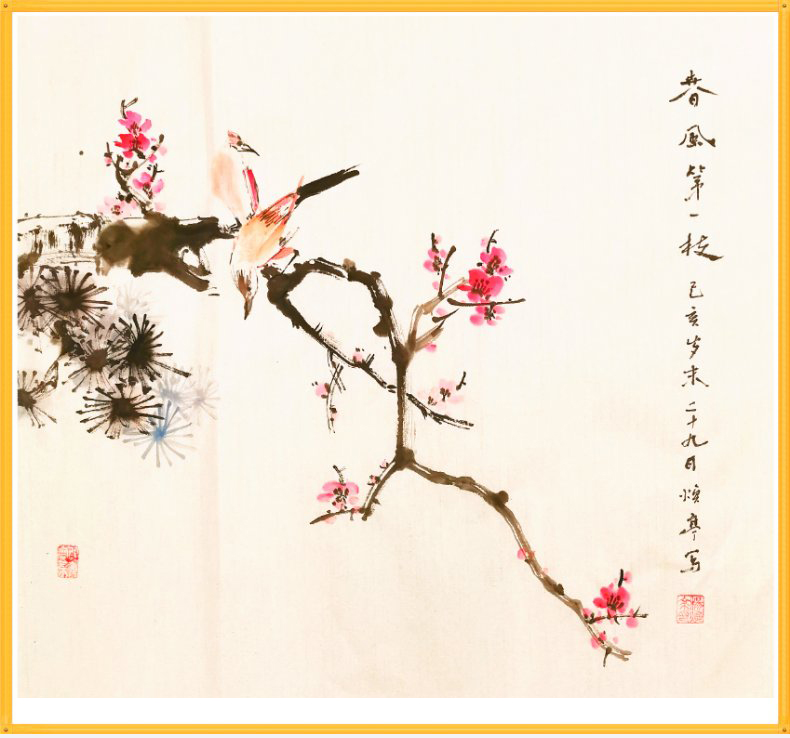 春风第一枝 己亥岁末二十九日 焕亭写